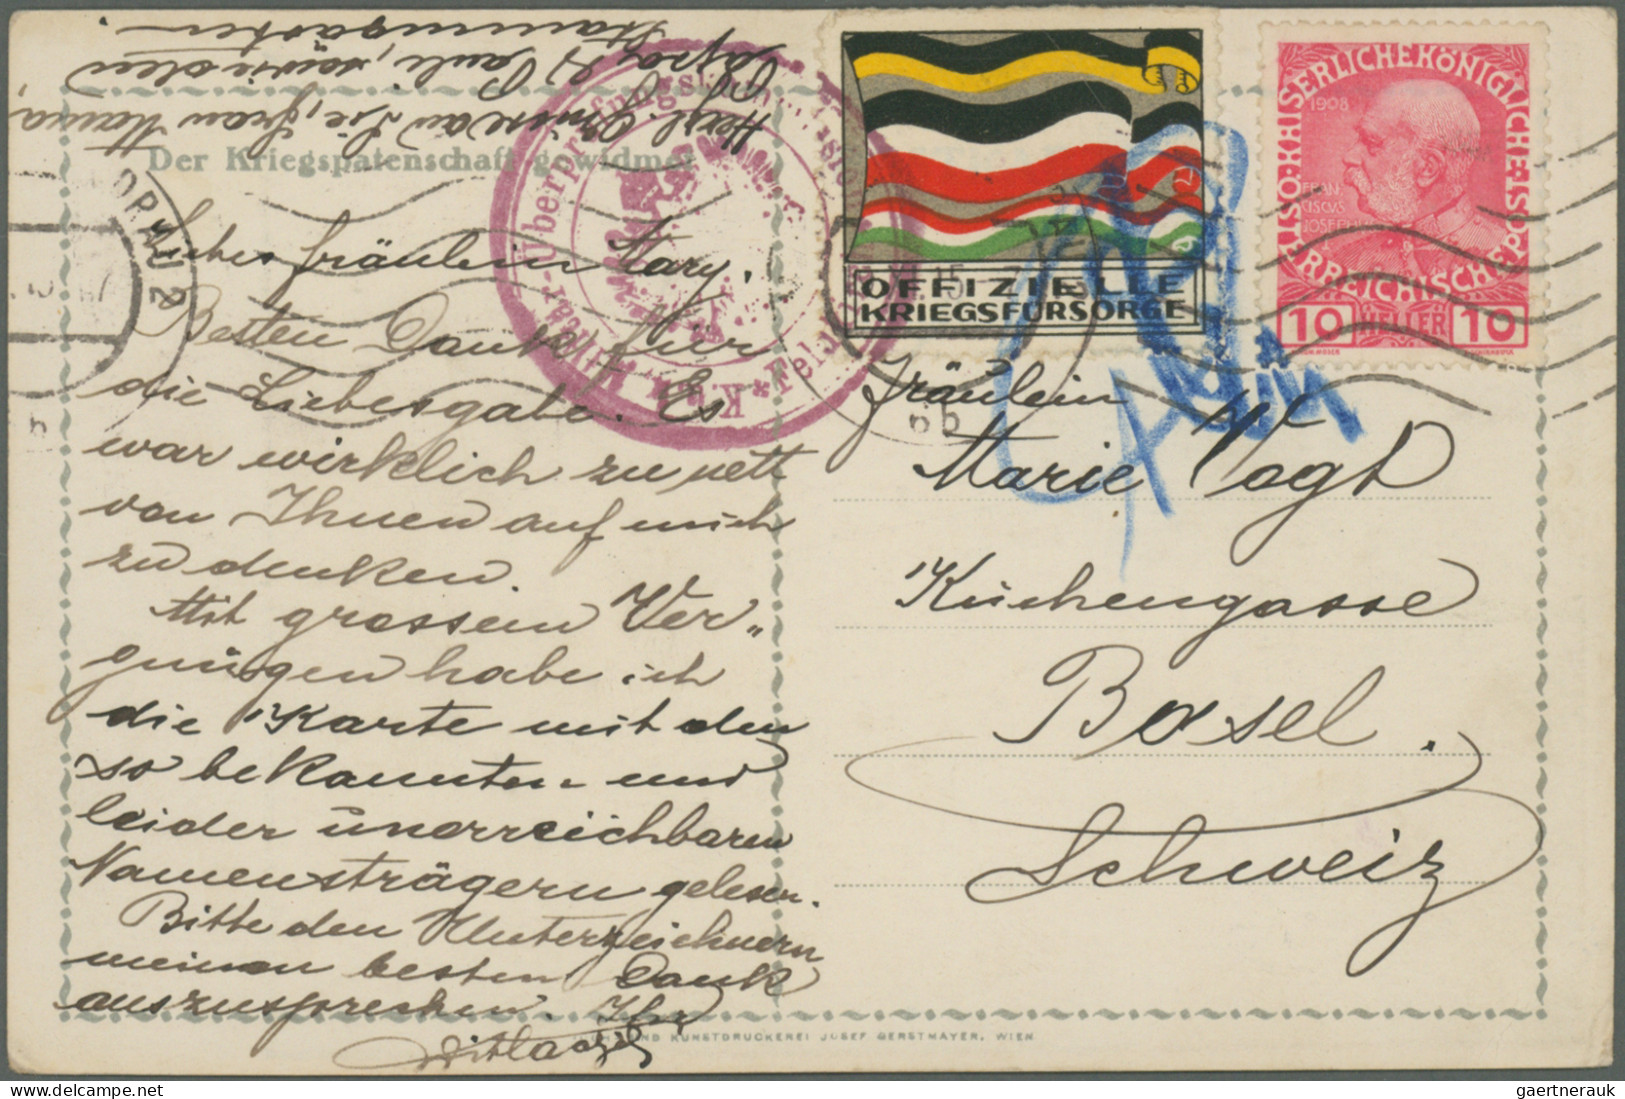 Herzl. Grüsse an Sie, Frau Mama,
Papa & Pauli, sowie den
Stammgästen.
Der Kriegspatenschaft gewidmet
Liebes Fräulein Mary.
Besten Dank für
die Liebesgabe. Es
war wirklich zu nett
von Ihnen auf mich
zu denken.
Mit grossem Ver„
gnügen habe ich
die Karte mit den
so bekannten und
leider unerreichbaren
Namensträgern gelesen.
Bitte den Unterzeichnern
meinen besten Dank
auszusprechen. Ihr
OFFIZIELLE
KRIEGSFÜRSORGE
KAISERLICHE KÖNIGLICHE ÖSTERREICHISCHE POST
1908
FRAN
CISCUS
JOSEPH I
10 HELLER 10
Überprüfungskommission
Feld
15
6b
Fräulein
Marie Vogt
Küchengasse
Basel.
Schweiz
KUNSTDRUCKEREI JOSEF GERSTMAYER, WIEN
gaertnerauk